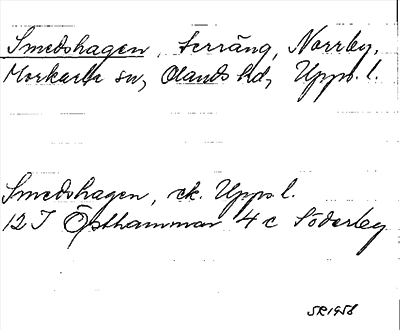 Smedshagen, terräng, Norrby,
Morkarla sn, Olands hd, Upps. l.
Smedshagen, ek. Upps l.
12 I Östhammar 4 c Söderby
SR1958